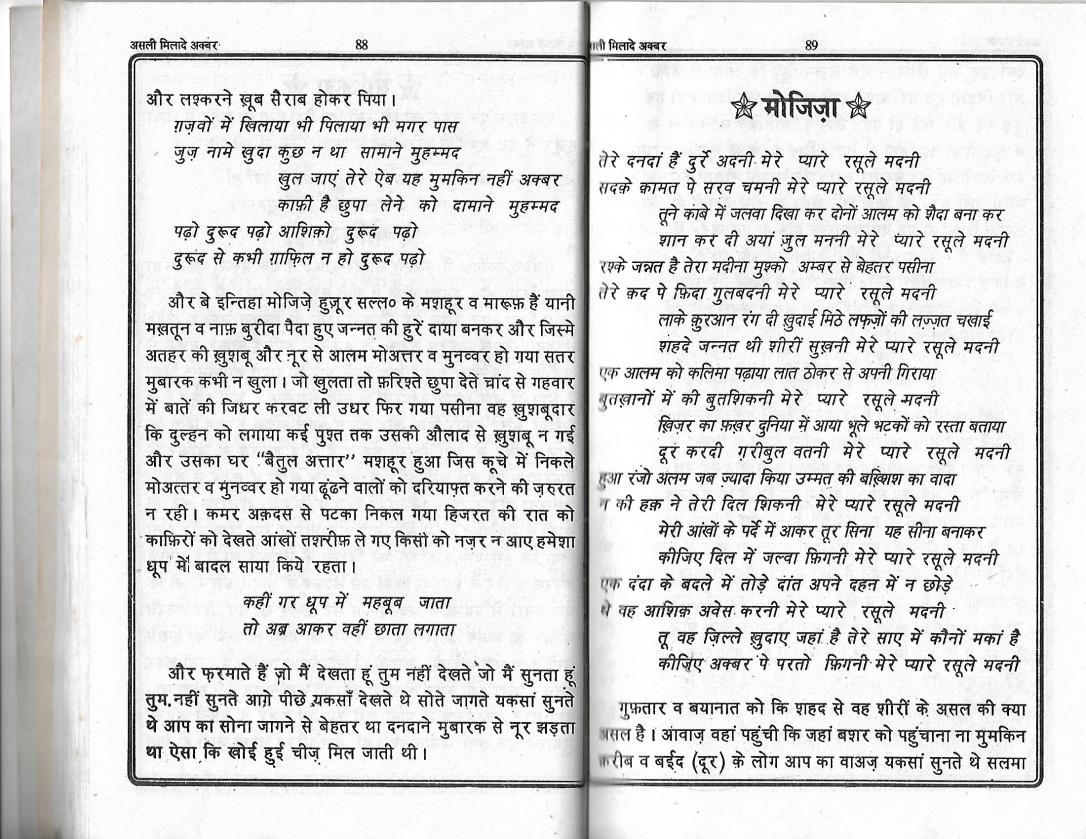 असली मिलादे अक्बर 88
और लश्करने ख़ूब सैराब होकर पिया।
ग़ज़वों में खिलाया भी पिलाया भी मगर पास
जुज़ नामे खुदा कुछ न था सामाने मुहम्मद
खुल जाएं तेरे ऐब यह मुमकिन नहीं अक्बर
काफ़ी है छुपा लेने को दामाने मुहम्मद
पढ़ो दुरूद पढ़ो आशिक़ो दुरूद पढ़ो
दुरूद से कभी ग़ाफ़िल न हो दुरूद पढ़ो
और बे इन्तिहा मोजिज़े हुज़ूर सल्ल० के मशहूर व मारूफ़ हैं यानी
मख़तून व नाफ़ बुरीदा पैदा हुए जन्नत की हुरें दाया बनकर और जिस्मे
अतहर की ख़ुशबू और नूर से आलम मोअत्तर व मुनव्वर हो गया सतर
मुबारक कभी न खुला। जो खुलता तो फ़रिश्ते छुपा देते चांद से गहवार
में बातें की जिधर करवट ली उधर फिर गया पसीना वह ख़ुशबूदार
कि दुल्हन को लगाया कई पुश्त तक उसकी औलाद से ख़ुशबू न गई
और उसका घर “बैतुल अत्तार” मशहूर हुआ जिस कूचे में निकले
मोअत्तर व मुनव्वर हो गया ढूंढने वालों को दरियाफ्त करने की ज़रुरत
न रही। कमर अक़दस से पटका निकल गया हिजरत की रात को
काफ़िरों को देखते आंखों तशरीफ़ ले गए किसी को नज़र न आए हमेशा
धूप में बादल साया किये रहता।
कहीं गर धूप में महबूब जाता
तो अब्र आकर वहीं छाता लगाता
और फ़रमाते हैं ज़ो मैं देखता हूं तुम नहीं देखते जो मैं सुनता हूं
तुम नहीं सुनते आगे पीछे यकसाँ देखते थे सोते जागते यकसां सुनते
थे आप का सोना जागने से बेहतर था दनदाने मुबारक से नूर झड़ता
था ऐसा कि खोई हुई चीज़ मिल जाती थी।
ली मिलादे अक्बर 89
मोजिज़ा
तेरे दनदां हैं दुर्रे अदनी मेरे प्यारे रसूले मदनी
सदक़े क़ामत पे सरव चमनी मेरे प्यारे रसूले मदनी
तूने काबे में जलवा दिखा कर दोनों आलम को शैदा बना कर
शान कर दी अयां जुल मननी मेरे प्यारे रसूले मदनी
रश्के जन्नत है तेरा मदीना मुश्को अम्बर से बेहतर पसीना
तेरे क़द पे फ़िदा गुलबदनी मेरे प्यारे रसूले मदनी
लाके क़ुरआन रंग दी ख़ुदाई मिठे लफ़ज़ों की लज़्ज़त चखाई
शहदे जन्नत थी शीरीं सुख़नी मेरे प्यारे रसूले मदनी
एक आलम को कलिमा पढ़ाया लात ठोकर से अपनी गिराया
बुतख़ानों में की बुतशिकनी मेरे प्यारे रसूले मदनी
ख़िज़र का फ़ख़र दुनिया में आया भूले भटकों को रस्ता बताया
दूर करदी ग़रीबुल वतनी मेरे प्यारे रसूले मदनी
हुआ रंजो अलम जब ज़्यादा किया उम्मत की बख़्शिश का वादा
न की हक़ ने तेरी दिल शिकनी मेरे प्यारे रसूले मदनी
मेरी आंखों के पर्दे में आकर तूर सिना यह सीना बनाकर
कीजिए दिल में जल्वा फ़िगनी मेरे प्यारे रसूले मदनी
एक दंदा के बदले में तोड़े दांत अपने दहन में न छोड़े
थे वह आशिक़ अवेस करनी मेरे प्यारे रसूले मदनी
तू वह ज़िल्ले ख़ुदाए जहां है तेरे साए में कौनों मकां है
कीजिए अक्बर पे परतो फ़िगनी मेरे प्यारे रसूले मदनी
गुफ़तार व बयानात को कि शहद से वह शीरीं के असल की क्या
असल है। आवाज़ वहां पहुंची कि जहां बशर को पहुंचाना ना मुमकिन
क़रीब व बईद (दूर) के लोग आप का वाअज़ यकसां सुनते थे सलमा